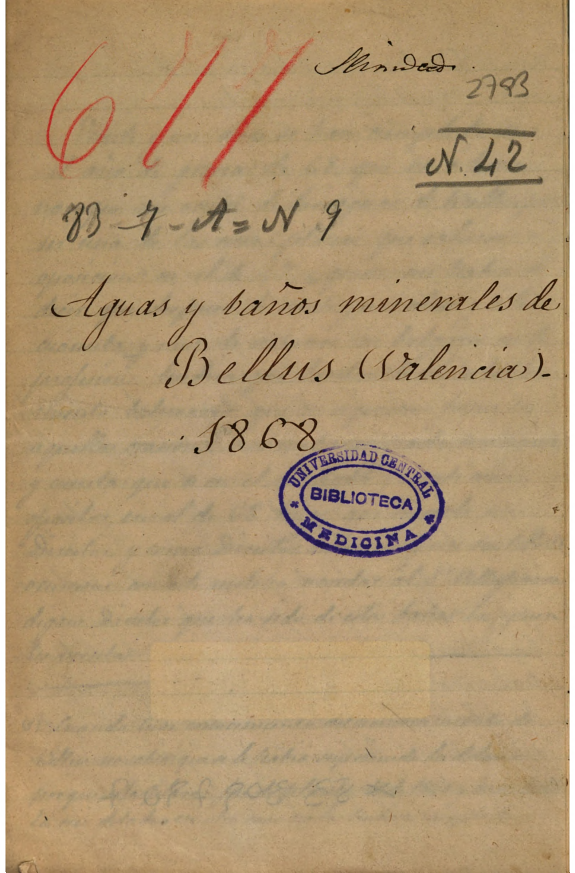 677
2783
N. 42
83-7-A=N 9
Aguas y baños minerales de
Bellus (Valencia)-
1868
UNIVERSIDAD CENTRAL
BIBLIOTECA
* MEDICINA *